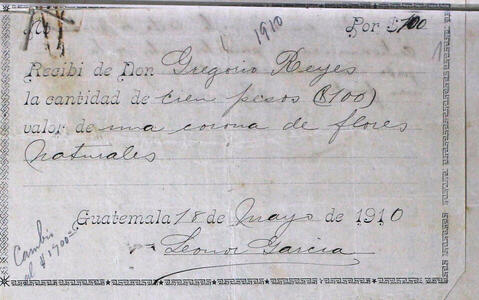 No. 1910 Por $100
Recibí de Don Gregorio Reyes
la cantidad de cien pesos ($100)
valor de una corona de flores
naturales
Guatemala 18 de Mayo de 1910
Leonor Garcia
Cambio
al $1700=